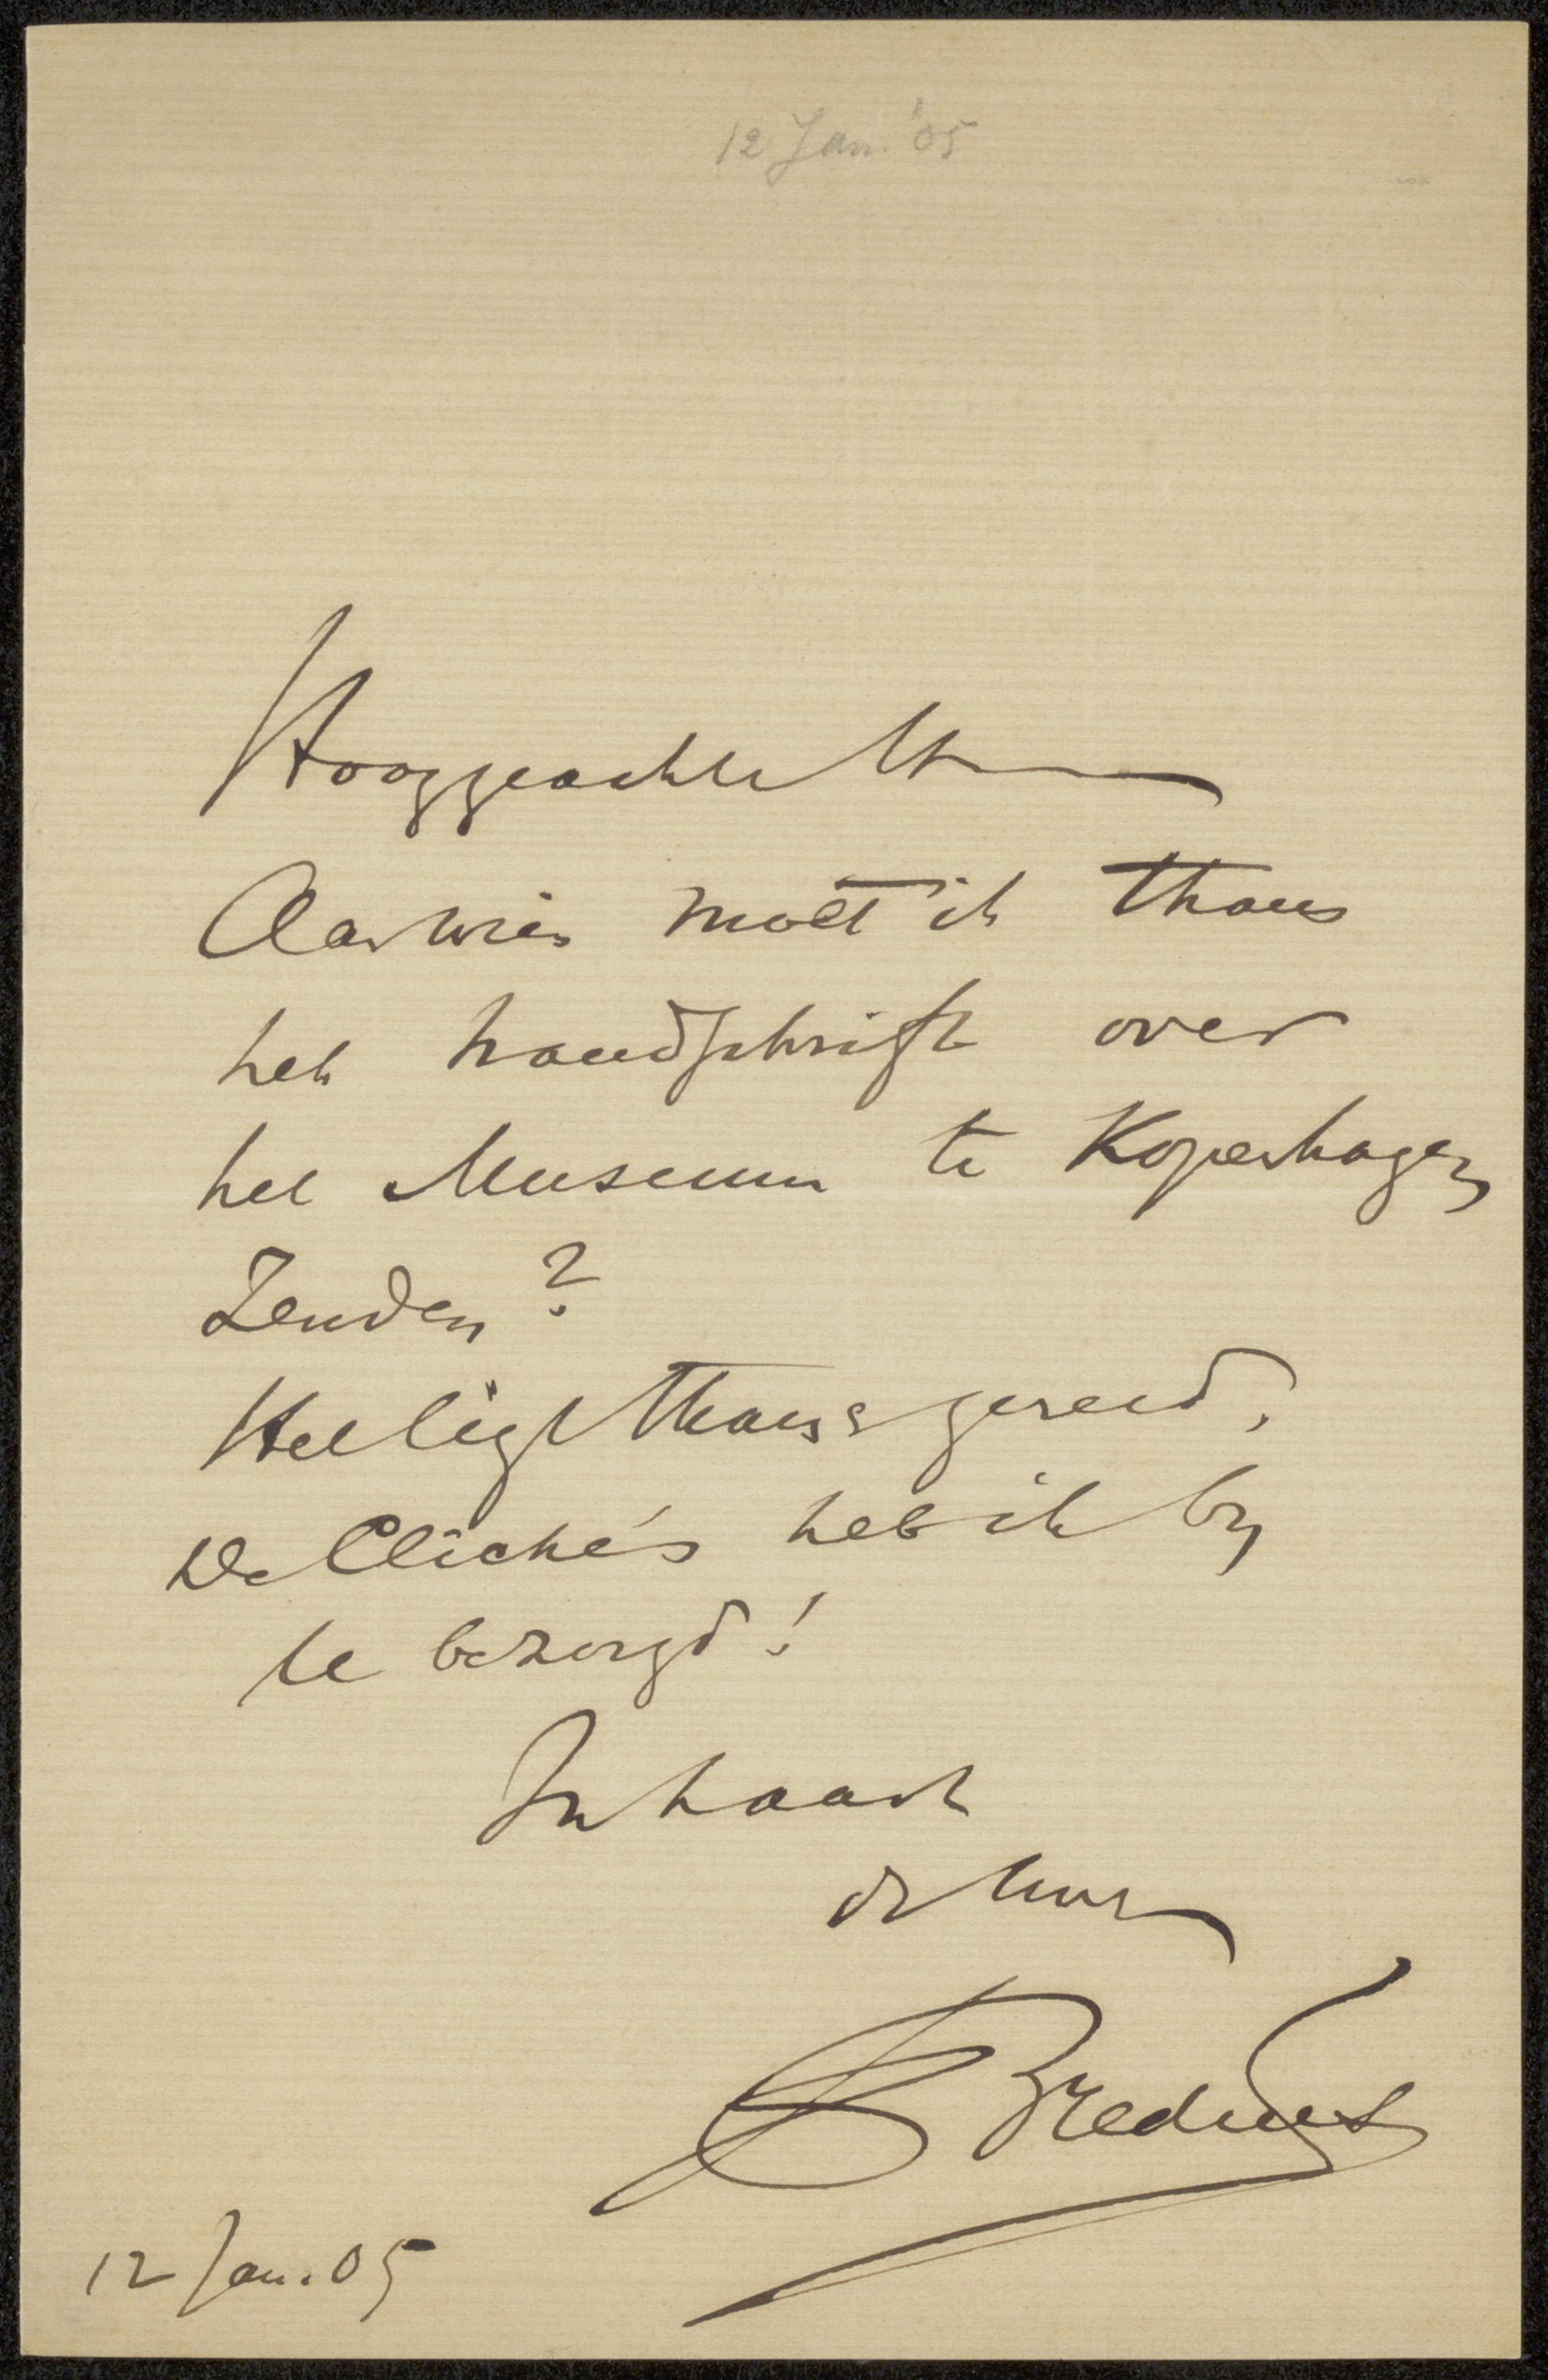 12 Jan. '05
Hooggeachte Heer
Aan wien moet ik thans
het handschrift over
het Museum te Kopenhagen
Zenden?
Het ligt thans gereed,
De Cliché's heb ik by
te bezorgd!
In haast
Bredius
12 Jan. 05